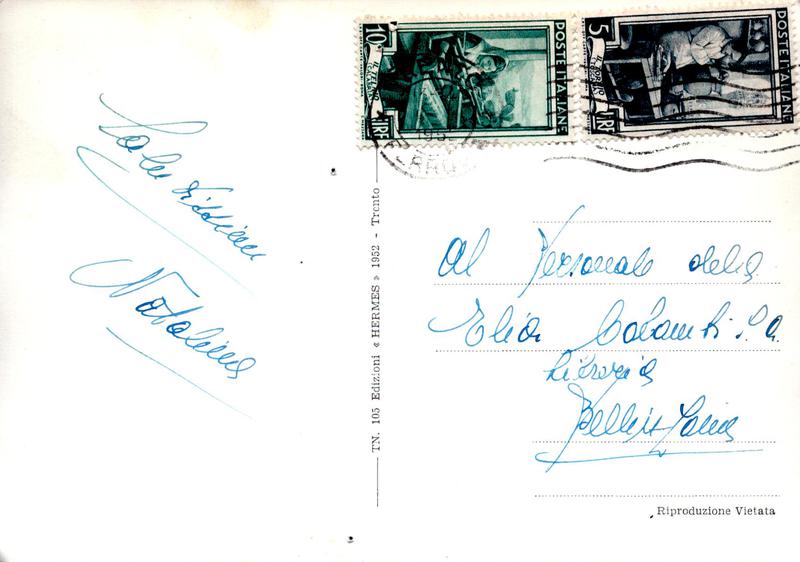 10
LIRE
POSTE ITALIANE
5
LIRE
POSTE ITALIANE
195
Natalina
TN. 105 Edizioni « HERMES » 1952 - Trento
Al Personale della
Elia Colombi S.A.
Libreria
Bellinzona
Riproduzione Vietata